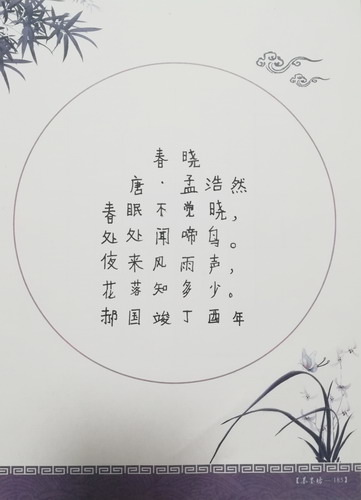 春晓
唐·孟浩然
春眠不觉晓，
处处闻啼鸟。
夜来风雨声，
花落知多少。
郝国竣丁酉年